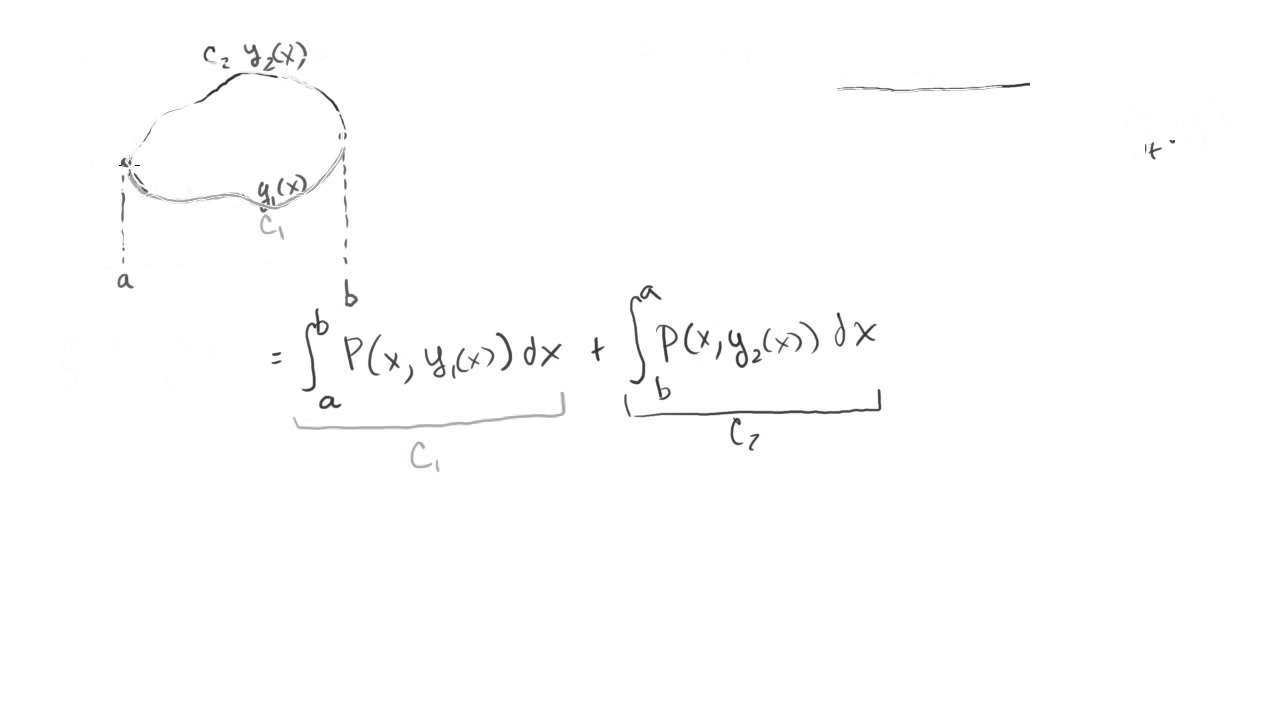 C₂ y₂(x)
y₁(x)
C₁
a
b
= ∫ₐᵇ P(x, y₁(x)) dx + ∫_bᵃ P(x, y₂(x)) dx
C₁ C₂